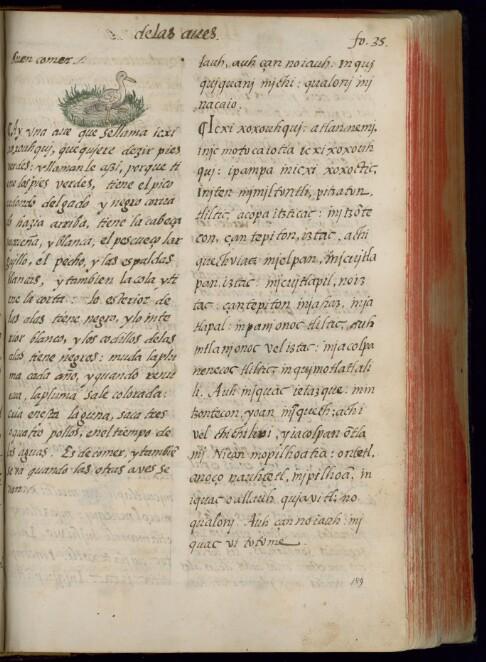 de las aues.
fo. 35.
buen comer.
¶Ay vna aue que se llama icxi
xoxouhqui, que quiere dezir pies
verdes: y llaman le assi, porque ti
ene los pies verdes, tiene el pico
redondo delgado y negro corua
do hazia arriba, tiene la cabeça
pequeña, y blanca, el pescueço lar
guillo, el pecho, y las espaldas
blancas, y tambien la cola y ti
ene la corta: lo esterior de
las alas tiene negro, y lo inte
rior blanco, y los codillos de las
alas tiene negros: muda la plu
ma cada año, y quando renu
eua, la pluma sale colorada:
cria en esta laguna, saca tres
o quatro pollos, en el tiempo de
las aguas. Es de comer, y tambie
se va quando las otras aues se
van.
iauh, auh çan no iauh. In qui
quiquani michi: qualoni mi
nacaio.
¶Icxi xoxouhqui: atlan nemi,
inic motocaiotia icxi xoxouh
qui: ipampa micxi xoxoctic,
inten mimiltontli, pitzaton
tliltic, acopa itzticac: mitzõte
con, çan tepiton, iztac, achi
quechuiac: mielpan, inicuitla
pan, iztac: micuitlapil, no iz
tac: çan tepiton inahaz, inja
tlapal: in pani onoc tliltic, auh
in tlani onoc vel iztac: injacolpa
nenecoc tliltic, inquimotlatlali
li. Auh iniquac ietazque: min
tzontecon, yoan miquech: achi
vel chichiltic, yiacolpan õtla
mi Nican mopilhoatia: ontetl,
anoço nauhtetl, in ipilhoã, in
iquac oallauh quiavitl: no
qualoni Auh çan no iauh ini
quac vi totome
189